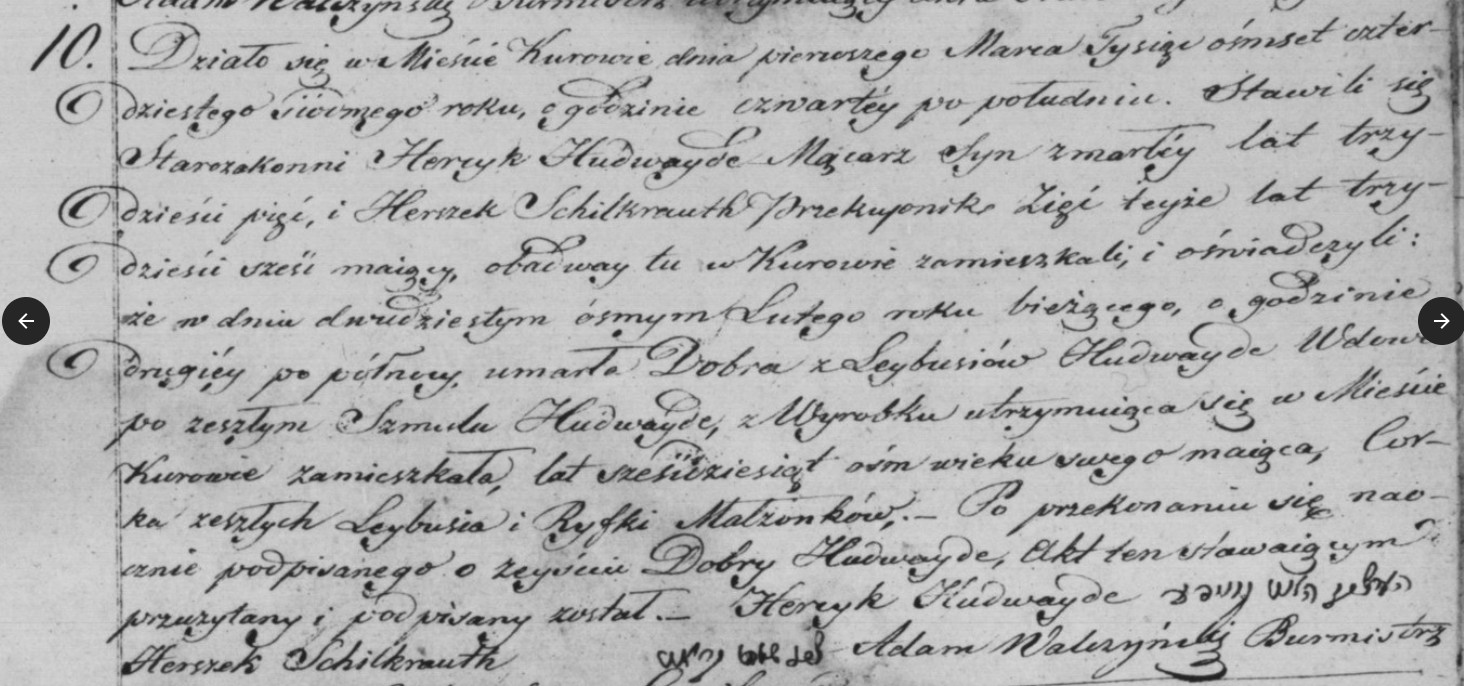 Adam Walczyński Burmistrz
10. Działo się w Mieście Kurowie dnia pierwszego Marca Tysiąc ośmset czter-
dziestego siódmego roku, o godzinie czwartéy po południu. Stawili się
Starozakonni Hercyk Hudwayde Mącarz Syn zmarłéy lat trzy-
dzieści pięć, i Herszek Schilkrauth Przekupnik Zięć teyże lat trzy-
dzieści sześć maiący, obadway tu w Kurowie zamieszkali, i oświadczyli:
że w dniu dwudziestym ósmym Lutego roku bieżącego, o godzinie
drugiéy po północy, umarła Dobra z Leybusiów Hudwayde Wdowa
po zeszłym Szmulu Hudwayde, z Wyrobku utrzymuiąca się w Mieście
Kurowie zamieszkała, lat sześćdziesiąt ośm wieku swego maiąca, Cor-
ka zeszłych Leybusia i Ryfki Malżonków,.— Po przekonaniu się nao-
cznie podpisanego o zeyściu Dobry Hudwayde, Akt ten stawaiącym
przeczytany i podpisany został.— Hercyk Hudwayde
Herszek Schilkrauth Adam Walczyński Burmistrz